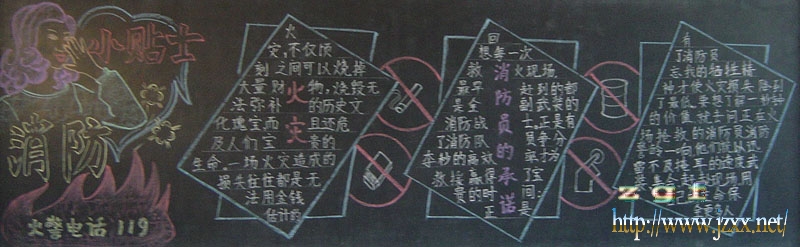 小贴士
消防
火警电话 119
火
灾,不仅顷
刻之间可以烧掉
大量财物,烧毁无
法弥补的历史文
化瑰宝而且还危
及人们宝贵的
生命,一场火灾造成的
损失往往都是无
法用金钱
估计的
火灾
回
想每一次
救火现场,
最早赶到的都
是全副武装的
消防战士,正是有
了消防队员争分
秒的高效才为
救援赢得了宝
的时间;
正是
消防员的承诺
有
了消防员
忘我的牺牲精
神才使火灾损失降到
了最低,要想了解一秒钟
的价值就去问正在火
场抢救的消防员消防
zgl
http://www.jzxx.net/